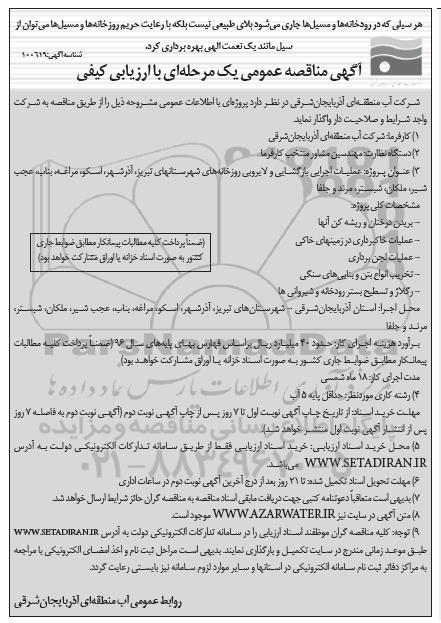 هر سیلی که در رودخانه‌ها و مسیل‌ها جاری می‌شود بلای طبیعی نیست بلکه با رعایت حریم روزخانه‌ها و مسیل‌ها می‌توان از
سیل مانند یک نعمت الهی بهره برداری کرد.
شناسه آگهی: ۱۰۰۶۱۹
آگهی مناقصه عمومی یک مرحله‌ای با ارزیابی کیفی
شرکت آب منطقه‌ای آذربایجان‌شرقی در نظر دارد پروژه‌ای با اطلاعات عمومی مشروحه ذیل را از طریق مناقصه به شرکت
واجد شرایط و صلاحیت دار واگذار نماید.
۱) کارفرما: شرکت آب منطقه‌ای آذربایجان‌شرقی
۲) دستگاه نظارت: مهندسین مشاور منتخب کارفرما
۳) عنوان پروژه: عملیات اجرایی بازگشایی و لایروبی روزخانه‌های شهرستانهای تبریز، آذرشهر، اسکو، مراغه، بناب، عجب
شیر، ملکان، شبستر، مرند و جلفا
مشخصات کلی پروژه:
– بریدن درختان و ریشه کن آنها
– عملیات خاکبرداری در زمینهای خاکی
– عملیات لجن برداری
– تخریب انواع بتن و بنایی‌های سنگی
– رگلاژ و تسطیح بستر رودخانه و شیروانی ها
(ضمناً پرداخت کلیه مطالبات پیمانکار مطابق ضوابط جاری
کشور به صورت اسناد خزانه یا اوراق مشارکت خواهد بود)
محل اجرا: استان آذربایجان‌شرقی – شهرستان‌های تبریز، آذرشهر، اسکو، مراغه، بناب، عجب شیر، ملکان، شبستر،
مرند و جلفا
برآورد هزینه اجرای کار: حدود ۴۰ میلیارد ریال براساس فهارس بهای پایه‌های سال ۹۶ (ضمناً پرداخت کلیه مطالبات
پیمانکار مطابق ضوابط جاری کشور به صورت اسناد خزانه یا اوراق مشارکت خواهد بود)
مدت اجرای کار: ۱۸ ماه شمسی
۴) رشته کاری موردنظر: حداقل پایه ۵ آب
مهلت خرید اسناد: از تاریخ چاپ آگهی نوبت اول تا ۷ روز پس از چاپ آگهی نوبت دوم (آگهی نوبت دوم به فاصله ۷ روز
پس از انتشار آگهی نوبت اول منتشر خواهد شد).
۵) محل خرید اسناد ارزیابی: خرید اسناد ارزیابی فقط از طریق سامانه تدارکات الکترونیکی دولت به آدرس
WWW.SETADIRAN.IR می‌باشد.
۶) مهلت تحویل اسناد تکمیل شده: تا ۲۱ روز بعد از درج آخرین آگهی نوبت دوم در ساعات اداری
۷) بدیهی است متعاقباً دعوتنامه کتبی جهت دریافت مابقی اسناد مناقصه به مناقصه گران حائز شرایط ارسال خواهد شد.
۸) متن آگهی در سایت نیز WWW.AZARWATER.IR موجود است.
۹) توجه: کلیه مناقصه گران موظفند اسناد ارزیابی را در سامانه تدارکات الکترونیکی دولت به آدرس WWW.SETADIRAN.IR
طبق موعد زمانی مندرج در سایت تکمیل و بارگذاری نمایند. بدیهی است مراحل ثبت نام و اخذ امضای الکترونیکی با مراجعه
به مراکز دفاتر ثبت نام سامانه الکترونیکی در استانها و سایر موارد لزوم سامانه نیز بایستی رعایت گردد.
روابط عمومی آب منطقه‌ای آذربایجان‌شرقی